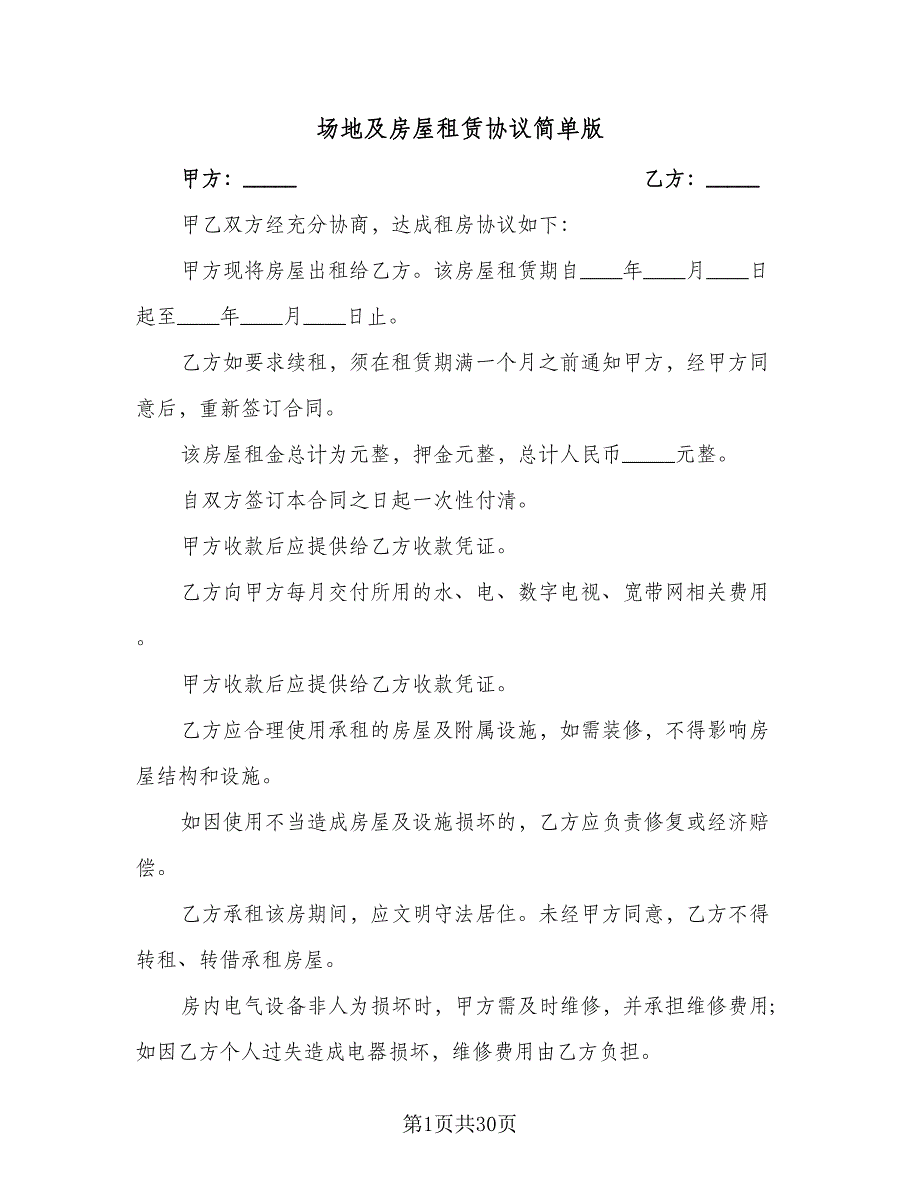 场地及房屋租赁协议简单版
甲方：_____ 乙方：_____
甲乙双方经充分协商，达成租房协议如下：
甲方现将房屋出租给乙方。该房屋租赁期自____年____月____日
起至____年____月____日止。
乙方如要求续租，须在租赁期满一个月之前通知甲方，经甲方同
意后，重新签订合同。
该房屋租金总计为元整，押金元整，总计人民币_____元整。
自双方签订本合同之日起一次性付清。
甲方收款后应提供给乙方收款凭证。
乙方向甲方每月交付所用的水、电、数字电视、宽带网相关费用
。
甲方收款后应提供给乙方收款凭证。
乙方应合理使用承租的房屋及附属设施，如需装修，不得影响房
屋结构和设施。
如因使用不当造成房屋及设施损坏的，乙方应负责修复或经济赔
偿。
乙方承租该房期间，应文明守法居住。未经甲方同意，乙方不得
转租、转借承租房屋。
房内电气设备非人为损坏时，甲方需及时维修，并承担维修费用;
如因乙方个人过失造成电器损坏，维修费用由乙方负担。
第1页共30页